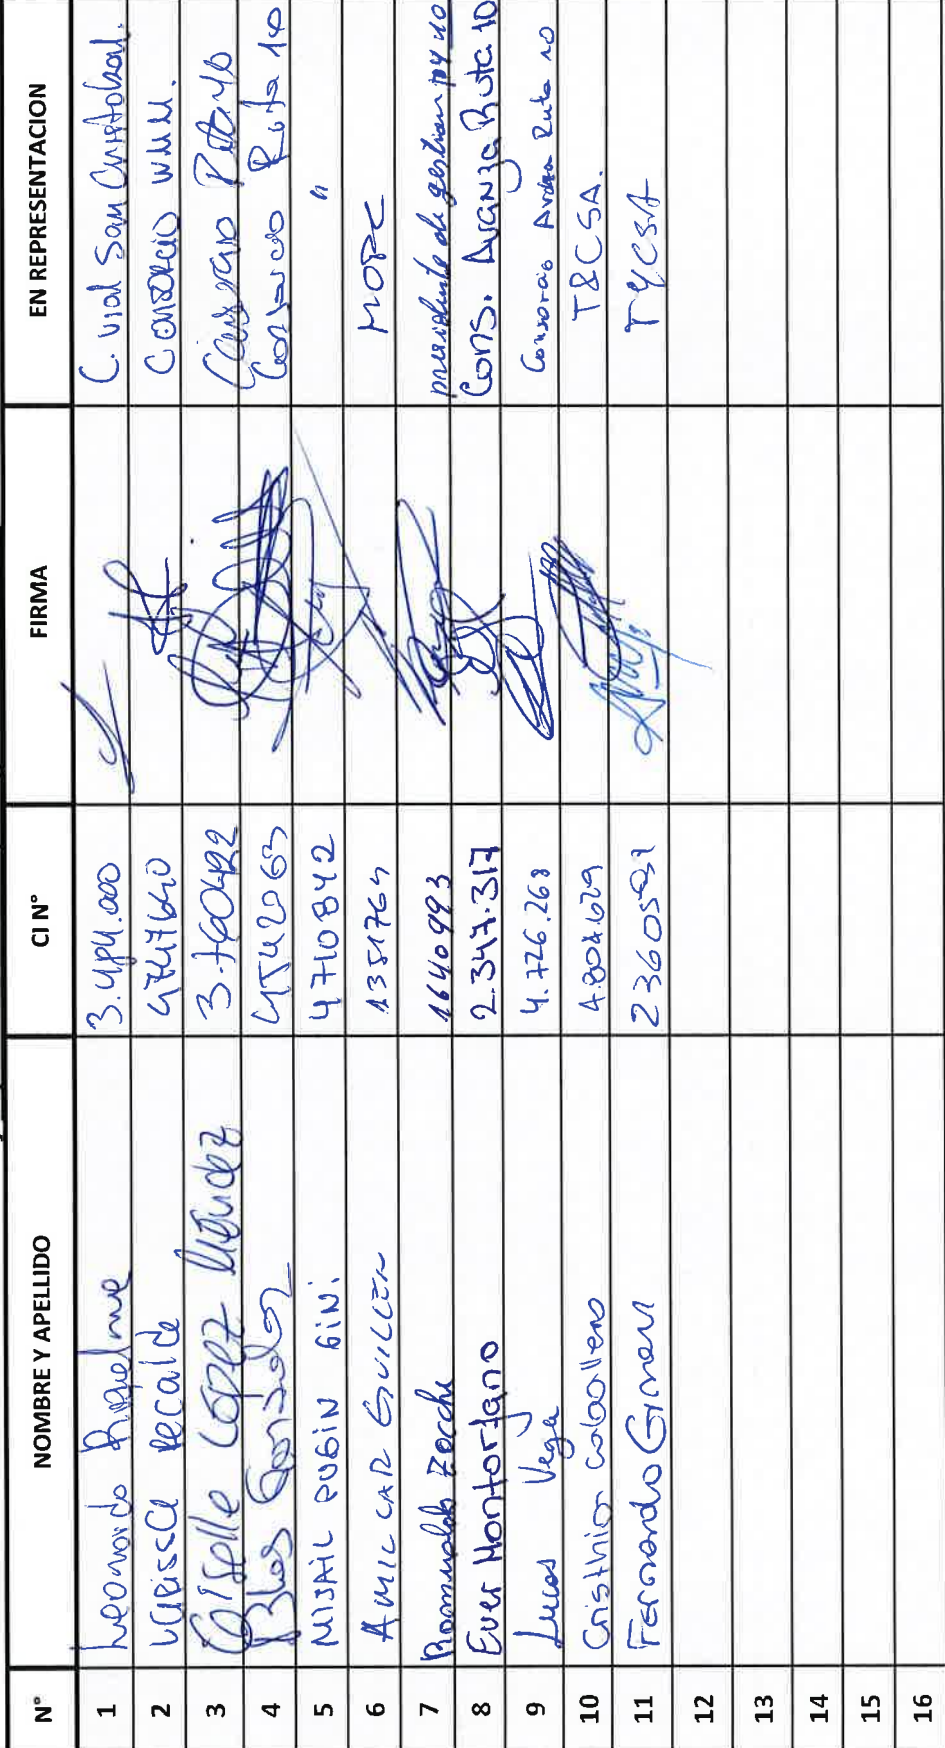 N° NOMBRE Y APELLIDO CI N° FIRMA EN REPRESENTACION
1 Leonardo Riquelme 3.484.000 C. Vial San Cristobal.
2 Larissa Recalde 4747640 Consorcio WMM.
3 Giselle López Méndez 3.760422 Consorcio Ruta 10
4 Blas González 4542063 Consorcio Ruta 10
5 MISAIL PUGIN GINI. 4710842 "
6 AMILCAR GUILLEN 1351764 MOPC
7 Romualdo Zocche 1640993 presidente de gestion py 10
8 Ever Montorfano 2.347.317 Cons. Avanza Ruta 10
9 Lucas Vega 4.726.268 Consorcio Avanza Ruta 10
10 Cristhian Caballero 4.804.629 T&CSA.
11 Fernando Gimenez TYCSA
12
13
14
15
16